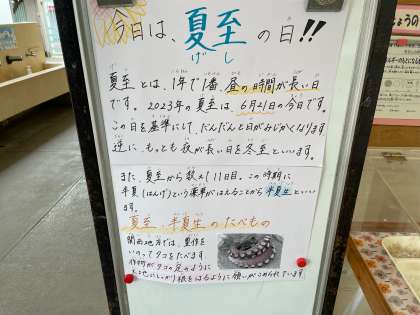 今日は、夏至の日!!
げし
夏至とは、1年で1番、昼の時間が長い日
です。2023年の夏至は、6月21日の今日です。
この日を基準にして、だんだんと日がみじかくなります
逆に、もっとも夜が長い日を冬至といいます。
また、夏至から数え11日目。この時期に
半夏(はんげ)という薬草がはえることから半夏生といい
ます。
夏至、半夏生のたべもの
関西地方では、豊作を
いのってタコをたべます
作物がタコの足のように
とちにしっかり根をはるように願いがこめられています